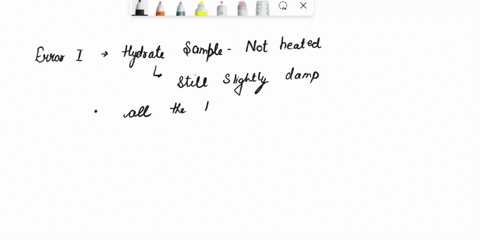 Error I → Hydrate Sample - Not heated
↳ Still slightly damp
• all the